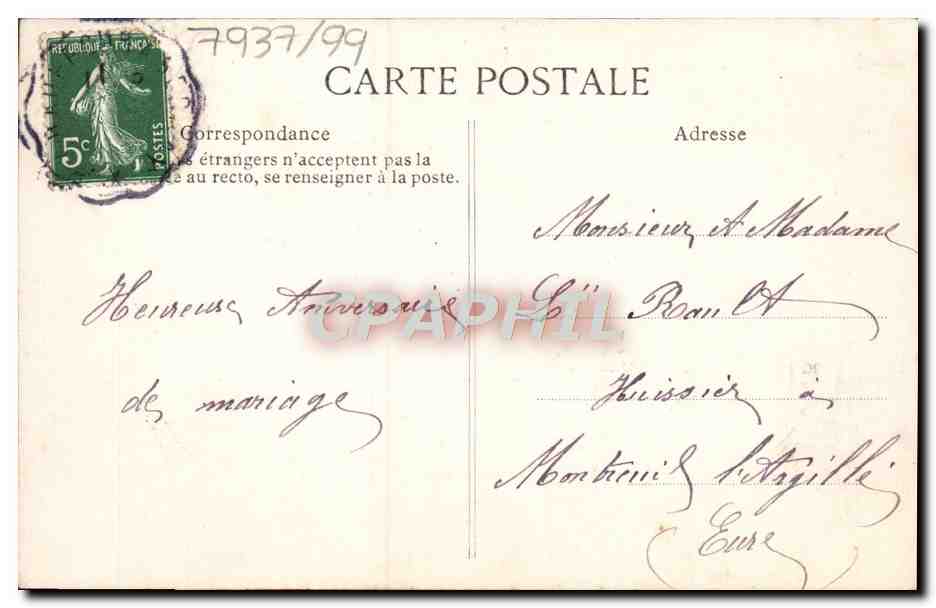 7937/99
REPUBLIQUE FRANÇAISE
5c
POSTES
CARTE POSTALE
Correspondance
étrangers n'acceptent pas la
au recto, se renseigner à la poste.
Heureuse Aniversaire
de mariage
Adresse
Monsieur et Madame
Rault
Huissier à
Montreuil l'Argillé
(Eure)
CPAPHIL